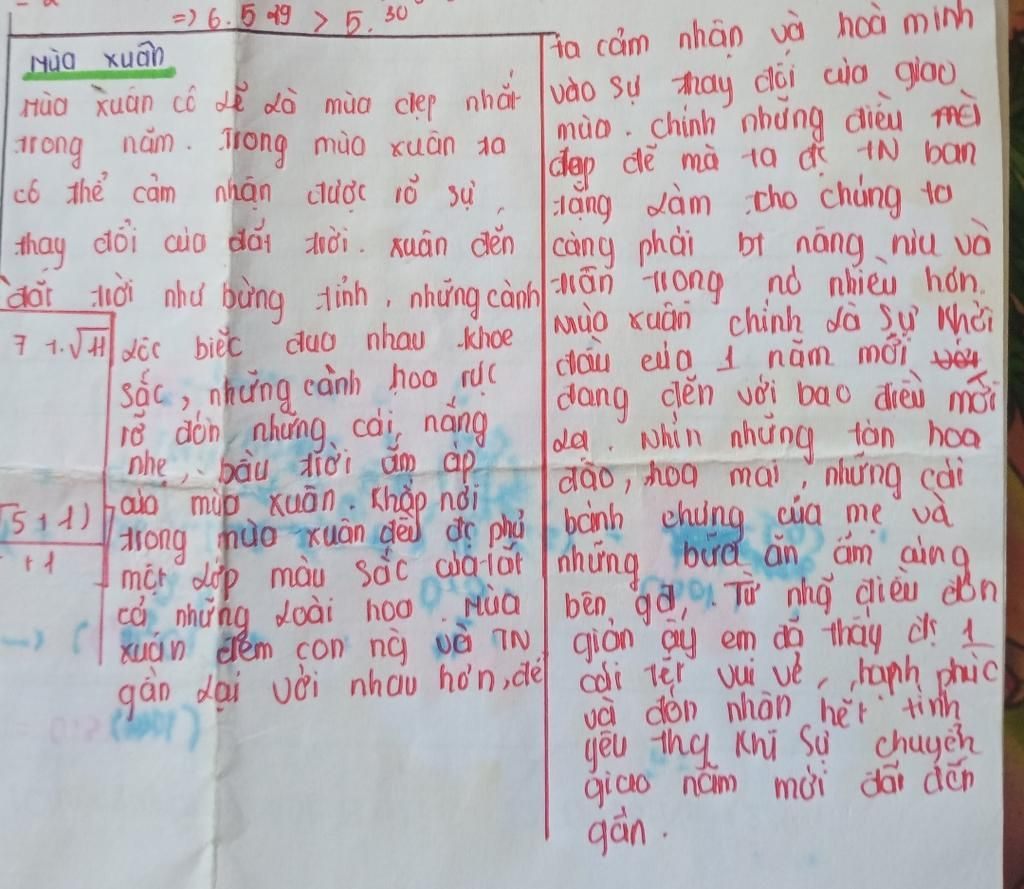 => 6. 5^29 > 5.^30
Mùa xuân
Mùa xuân có lẽ là mùa đẹp nhất
trong năm. Trong mùa xuân ta
có thể cảm nhận được rõ sự
thay đổi của đất trời. Xuân đến
đất trời như bừng tỉnh, những cành
lộc biếc đua nhau khoe
sắc, những cành hoa rực
rỡ đón những cái nắng
nhẹ, bầu trời ấm áp
của mùa xuân. Khắp nơi
trong mùa xuân đều đc phủ
một lớp màu sắc của tất
cả những loài hoa. Mùa
xuân đem con ng và TN
gần lại với nhau hơn, để
7 + √11
(5 + 1)
+ 1
ta cảm nhận và hoà mình
vào sự thay đổi của giao
mùa. Chính những điều
đẹp đẽ mà ta đc TN ban
tặng làm cho chúng ta
càng phải bt nâng niu và
trân trọng nó nhiều hơn.
Mùa xuân chính là sự khởi
đầu của 1 năm mới
đang đến với bao điều mới
lạ. Nhìn những tán hoa
đào, hoa mai, những cái
bánh chưng của mẹ và
những bữa ăn ấm cúng
bên gđ, . Từ nhg điều đơn
giản ấy em đã thấy đc 1
cái Tết vui vẻ, hạnh phúc
và đón nhận hết tình
yêu thg khi sự chuyển
giao năm mới đã đến
gần.